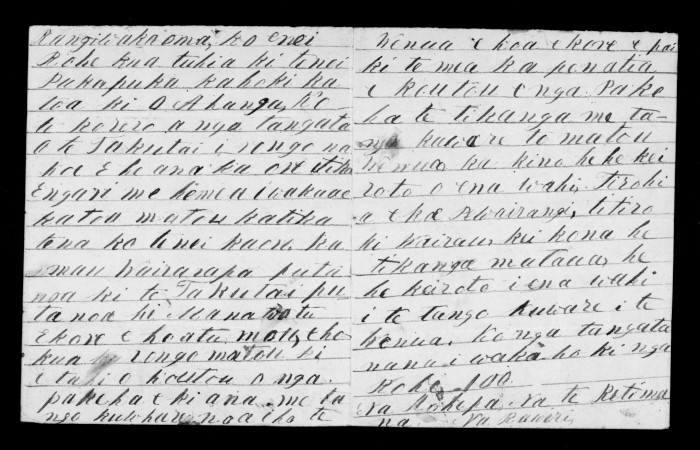 Rangiwakaoma, ko enei
Rohe kua tuhia ki tenei
Pukapuka kahoki ka
toa ki O Ahanga, Ko
te korero a nga tangata
O te Takutai i rongo na
koe E he ana ka ore tika
Engari me hemea i wakaae
katoa matou katika
tena ko tenei kaore, ka
mau Wairarapa puta
noa ki te Takutai pu
ta noa ki Manawatu
Ekore e hoatu, mou, e ho
kua rongo matou ki
e tahi o koutou o nga
pakeha e ki ana me ta
ngo kuwhare noa iho te
Wenua e hoa ekore e pai
ki te mea ka penatia
e koutou e nga Pake
ha te tikanga me ta-
ngo kuware to matou
Wenua, ka kino he he kei
roto o ena wahi, Tirohi
a e hoa Wairangi, titiro
ki Wairau, kei kona he
tikanga mataua, he
he keiroto i ena wahi
i te tango kuware i te
Wenua, Ko nga tangata
nana i waka ho ki nga
Rohe 100
Na Hohepa, Na te Retimana
na Na Raweri